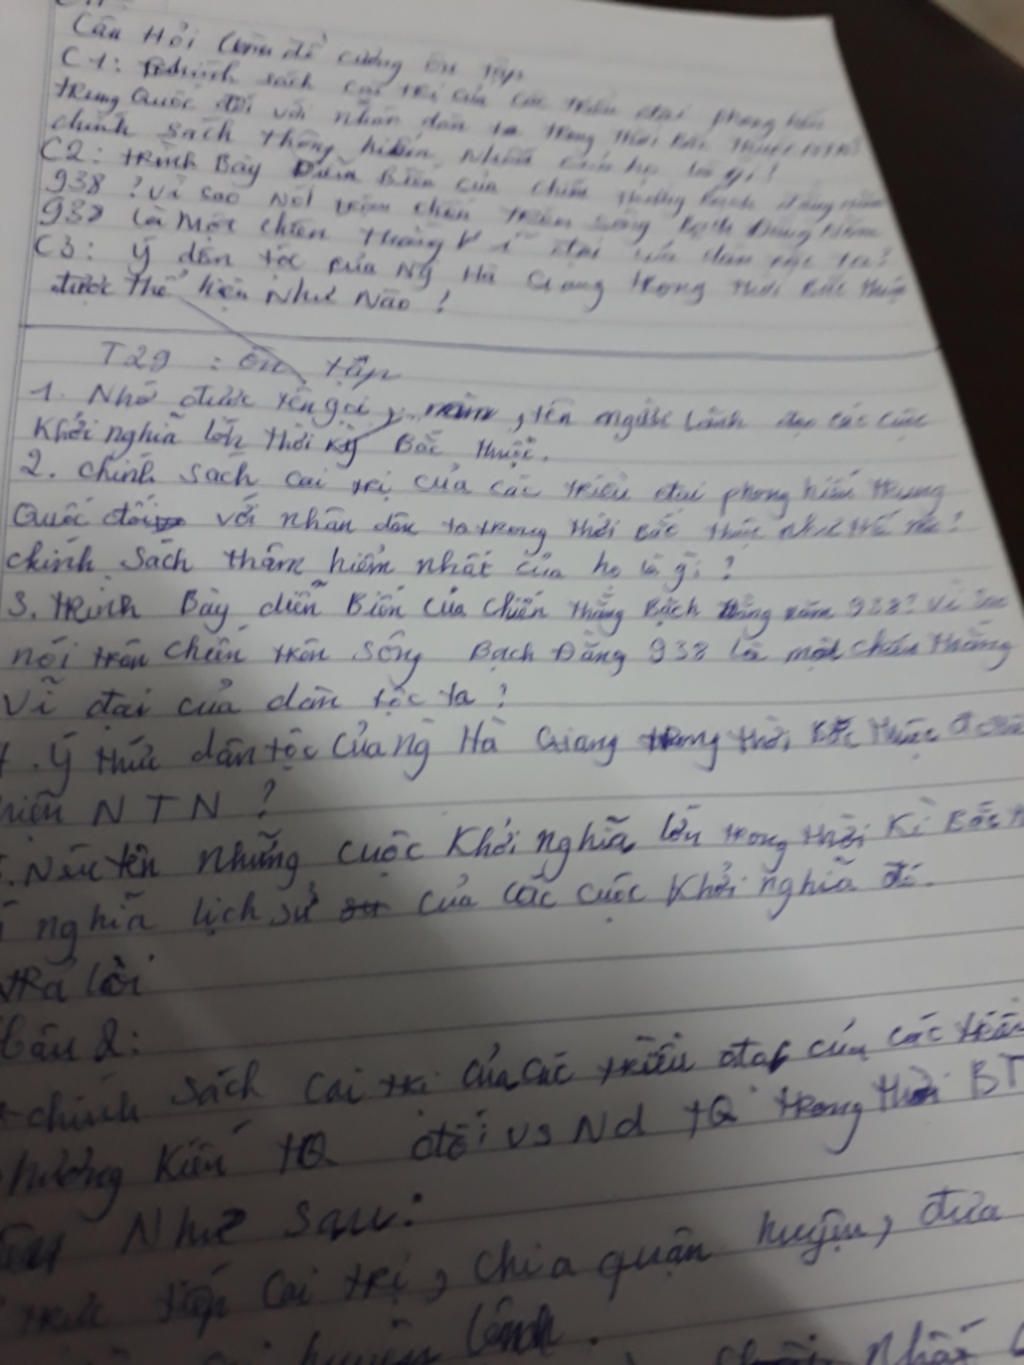 Câu Hỏi làm đề cương ôn tập
C1: chính sách cai trị của các triều đại phong kiến
trung Quốc đối với nhân dân ta trong thời Bắc thuộc
chính sách thâm hiểm nhất của họ là gì?
C2: trình Bày Diễn Biến của chiến thắng Bạch đằng năm
938 ? Vì sao Nói trận chiến trên sông Bạch Đằng Năm
938 là Một chiến thắng Vĩ đại của dân tộc ta?
C3: ý dân tộc của Ng Hà Giang trong thời Bắc thuộc
được thể hiện Như Nào !
T29 : ôn tập
1. Nhớ được tên gọi, năm, tên người Lãnh đạo các cuộc
Khởi nghĩa lớn thời kỳ Bắc thuộc.
2. chính sách cai trị của các triều đại phong kiến trung
Quốc đối với nhân dân ta trong thời Bắc thuộc Như thế nào?
chính sách thâm hiểm nhất của họ là gì ?
3. trình Bày diễn Biến của chiến thắng Bạch Đằng năm 938? Vì sao
nói trận chiến trên sông Bạch Đằng 938 là một chiến thắng
Vĩ đại của dân tộc ta ?
. ý thức dân tộc của ng Hà Giang trong thời Bắc thuộc
hiện NTN ?
. Nêu tên những cuộc Khởi nghĩa lớn trong thời Kì Bắc
nghĩa lịch sử của các cuộc Khởi nghĩa đó.
trả lời
Câu 2:
chính sách cai trị của các triều đại của các
phương Kiến TQ đối vs Nd TQ trong thời BT
Như sau:
trực tiếp cai trị, chia quận huyện, đưa
huyện lệnh.
nhất